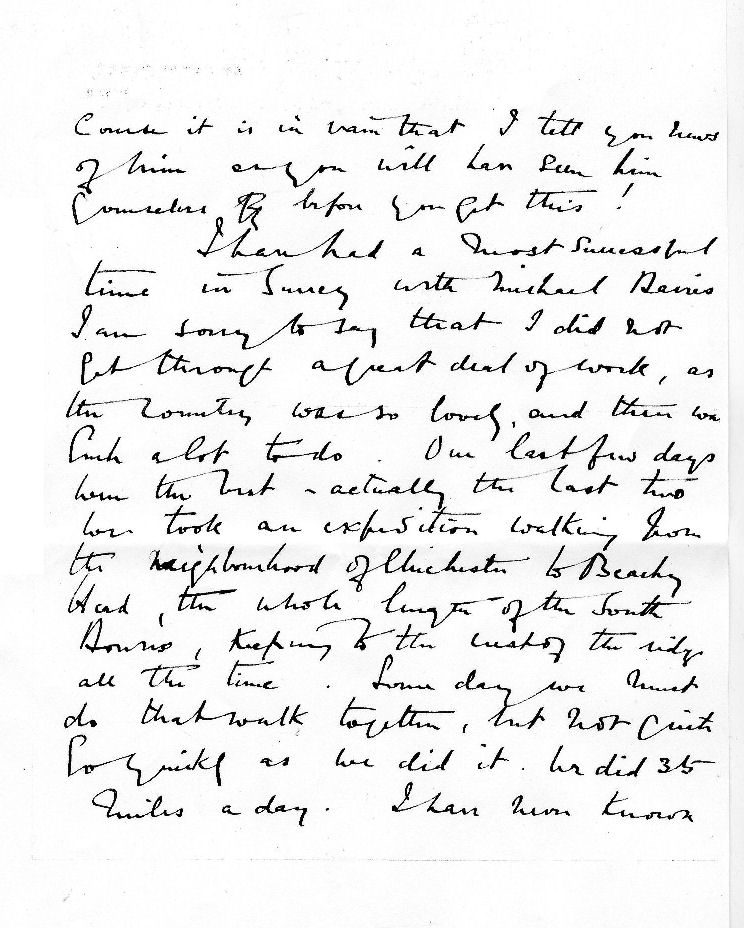 Course it is in vain that I tell you news
of him as you will have seen him
yourselves before you get this!
I have had a most successful
time in Surrey with Michael Davies
I am sorry to say that I did not
get through a great deal of work, as
the country was so lovely, and there was
such a lot to do. Our last few days
were the best - actually the last two
we took an expedition walking from
the neighbourhood of Chichester to Beachy
Head, the whole length of the South
Downs, keeping to the crest of the ridge
all the time. Some day we must
do that walk together, but not quite
so quickly as we did it. We did 35
miles a day. I have never known